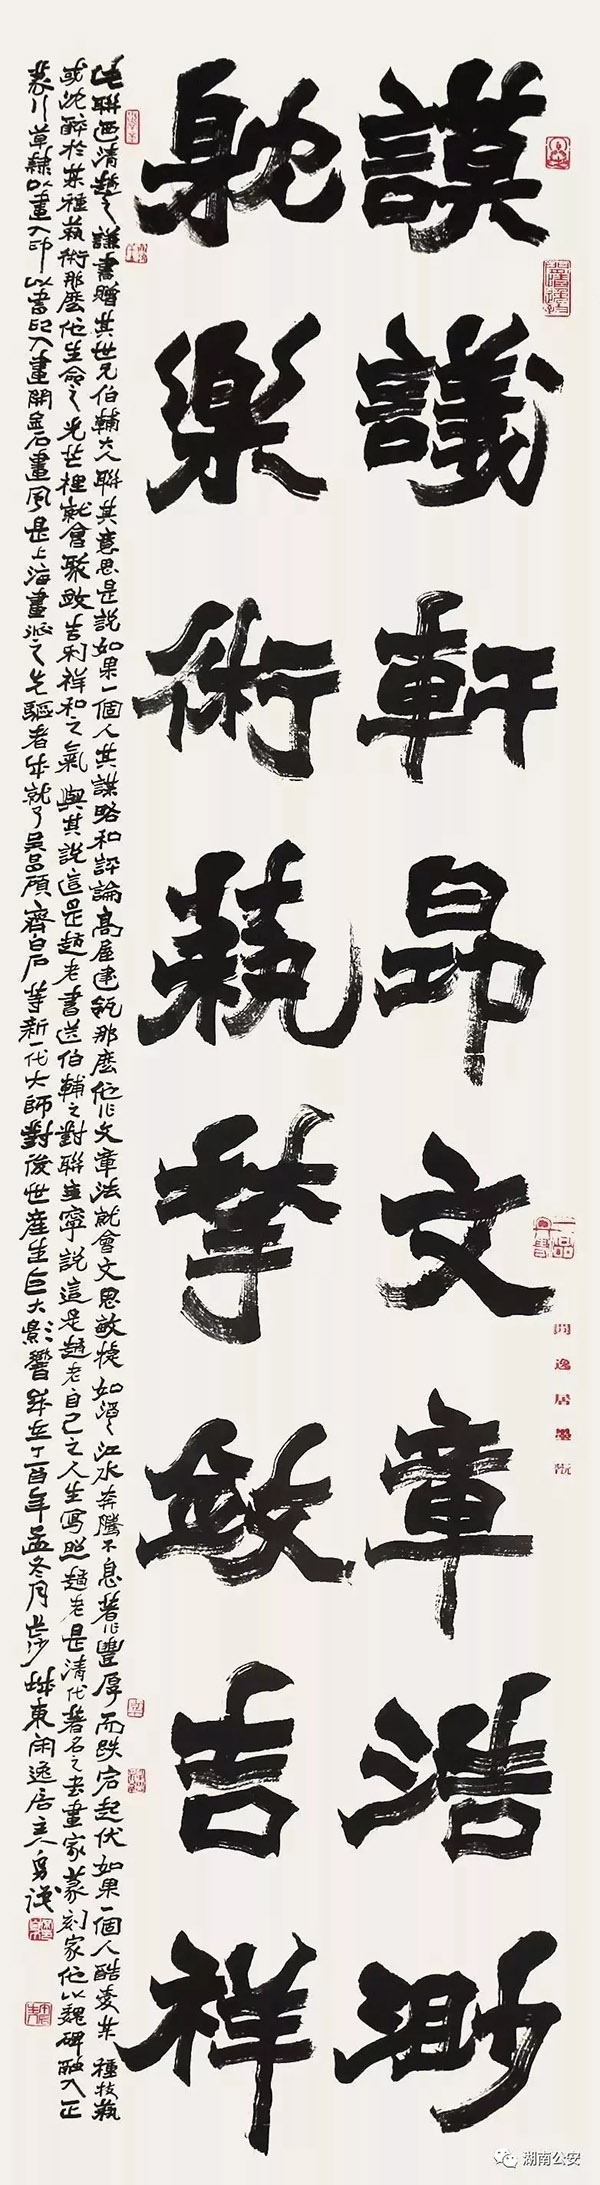 謨議軒昂文章浩渺
躭樂術藝孳斂吉祥
趙之謙書贈其世兄伯輔大人聯其意思是説如果一個人其謀略和評論高屋建瓴那麼他作文章法就會文思敏捷如漫江水奔騰不息著作豐厚而跌宕起伏如果一個人酷愛某種技藝
或沈醉於某種藝術那麼他生命之光芒裡就會聚斂吉利祥和之氣與其説這是趙老書送伯輔之對聯寧説這是趙老自己之人生寫照趙老是清代著名之書畫家篆刻家他以魏碑融入正
篆行草隸以畫入印以書印入畫開金石畫風是上海畫派之先驅者成就了吳昌碩齊白石等新一代大師對後世產生巨大影響歲在丁酉年孟冬月長沙城東閑逸居主人
閑逸居墨翫
湖南公安